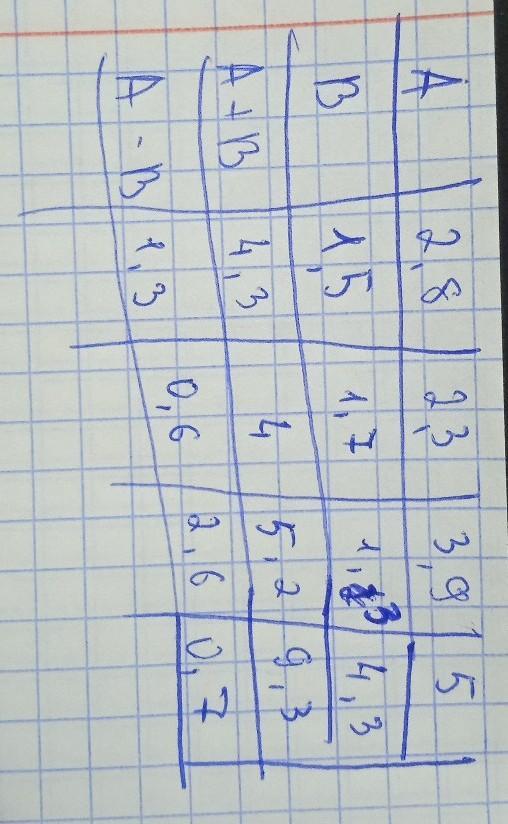 A 2,8 2,3 3,9 5
B 1,5 1,7 1,3 4,3
A+B 4,3 4 5,2 9,3
A-B 1,3 0,6 2,6 0,7